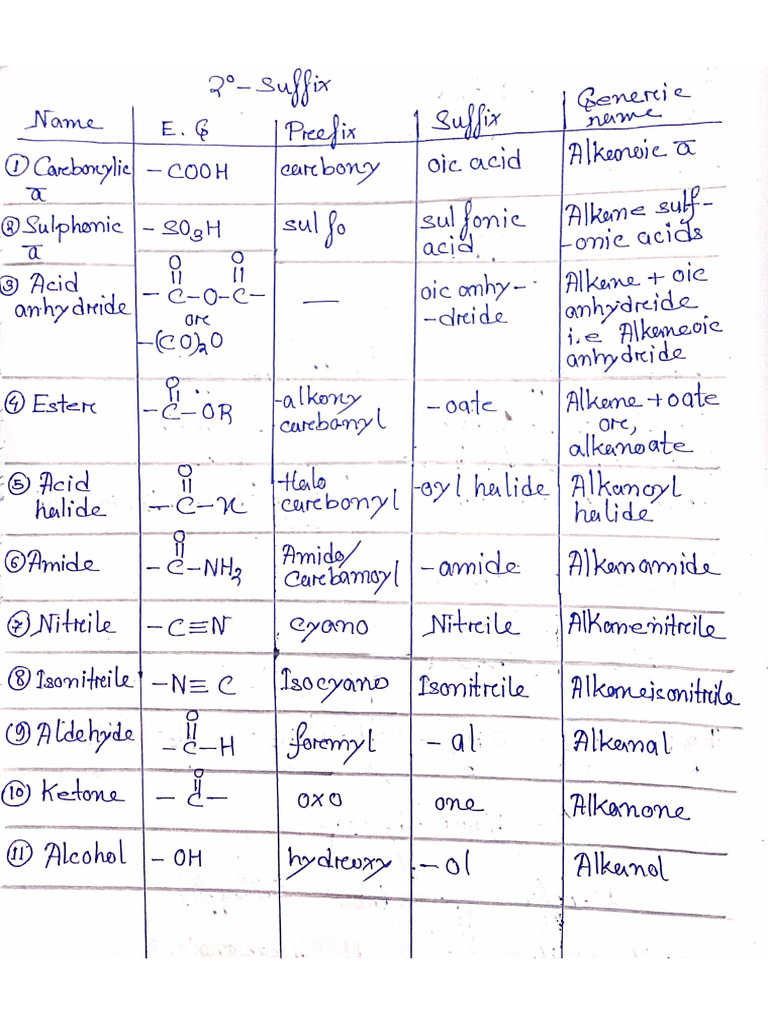 2° - Suffix
Name | E. G | Preefix | Suffix | Genercie name
① Carcboxylic a | - COOH | carcboxy | oic acid | Alkanoic a
② Sulphonic a | - SO3H | sulfo | sulfonic acid | Alkane sulf- -onic acids
③ Acid anhydreide | O O - C - O - C - orc -(CO)2O | — | oic anhy- -dreide | Alkane + oic anhydreide i.e Alkaneoic anhydreide
④ Esterc | O - C - OR | -alkoxy carcbonyl | - oate | Alkane + oate orc, alkanoate
⑤ Acid halide | O - C - X | -Halo carcbonyl | -oyl halide | Alkanoyl halide
⑥ Amide | O - C - NH2 | Amido/ Carcbamoyl | - amide | Alkanamide
⑦ Nitreile | - C ≡ N | cyano | Nitreile | Alkanenitreile
⑧ Isonitreile | - N ≡ C | Isocyano | Isonitreile | Alkaneisonitreile
⑨ Aldehyde | O - C - H | forcmyl | - al | Alkanal
⑩ Ketone | O - C - | oxo | one | Alkanone
⑪ Alcohol | - OH | hydreoxy | - ol | Alkanol